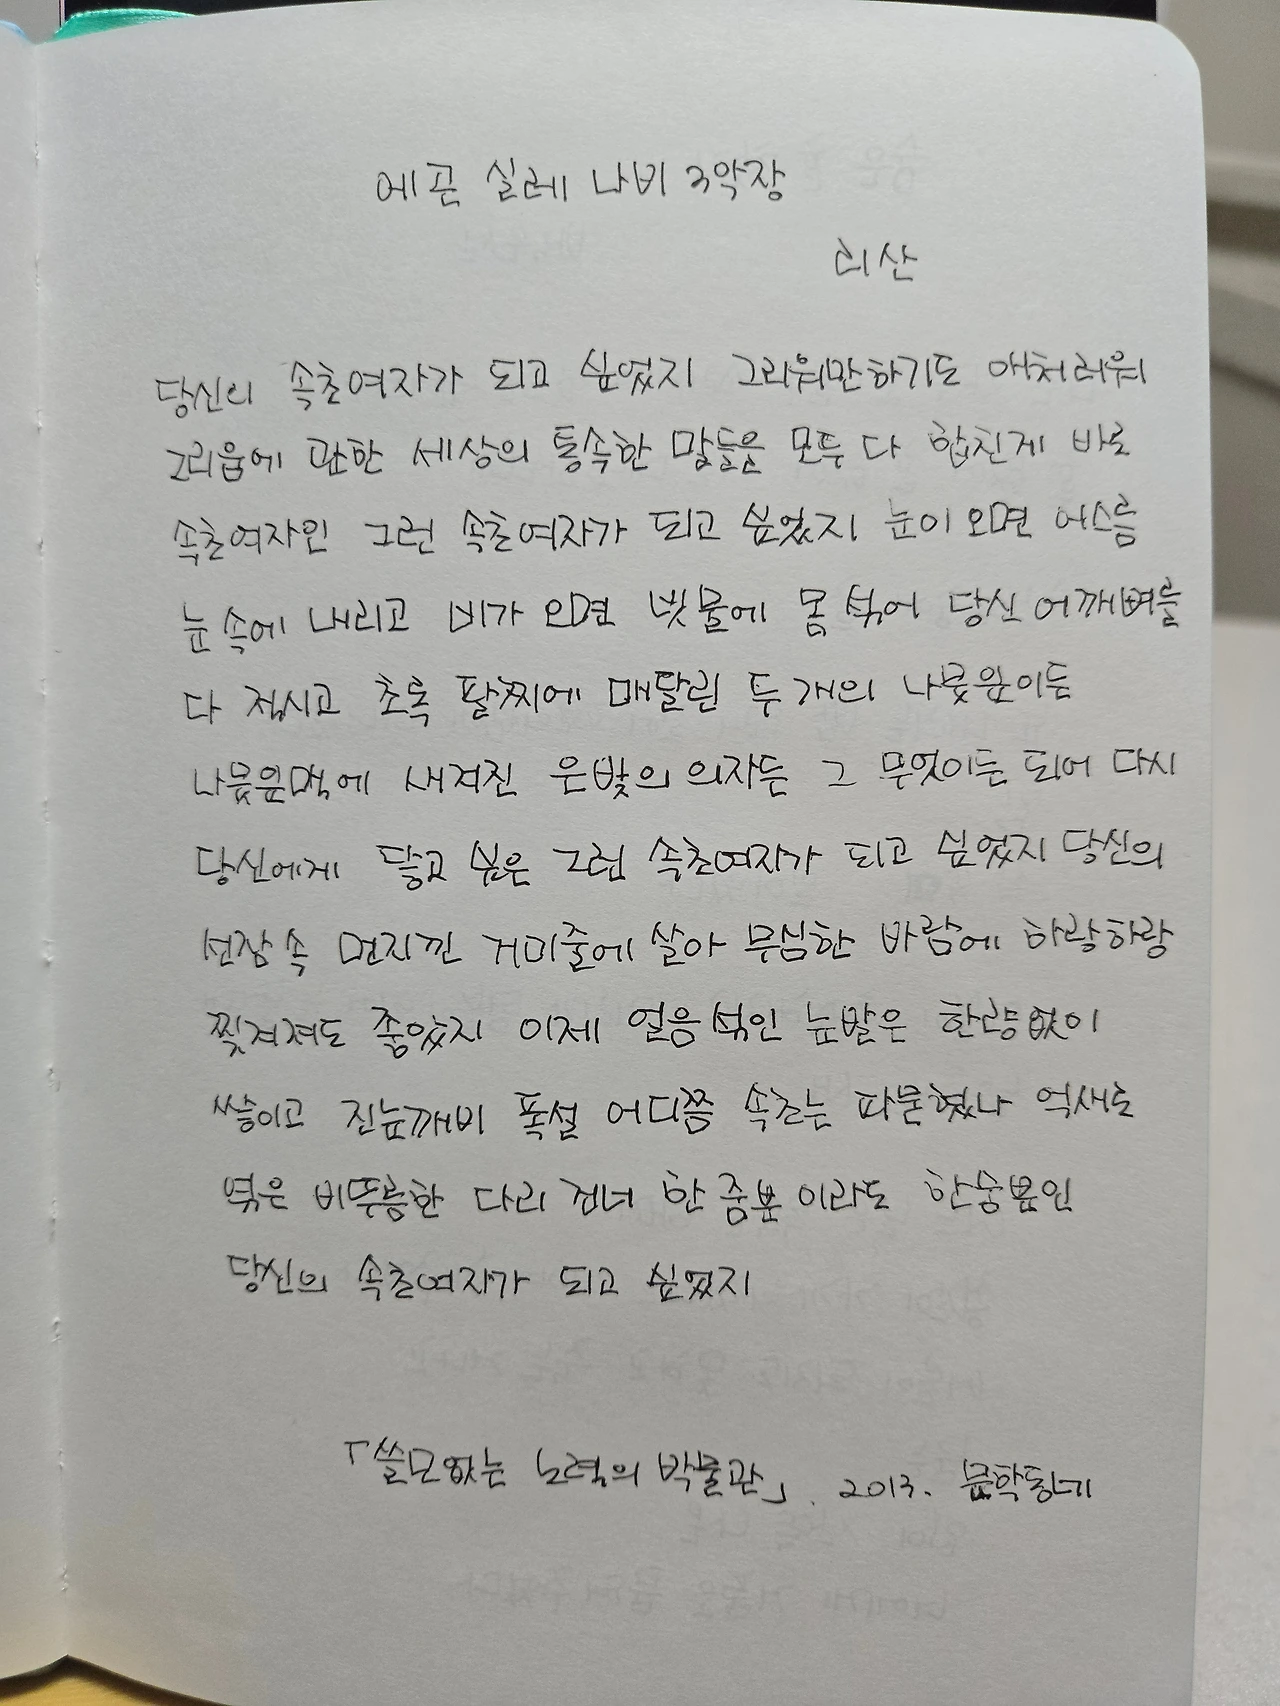 에곤 실레 나비 3악장
리산
당신의 속초여자가 되고 싶었지 그리워만하기도 애처러워
그리움에 관한 세상의 통속한 말들을 모두 다 합친게 바로
속초여자인 그런 속초여자가 되고 싶었지 눈이 오면 어스름
눈 속에 내리고 비가 오면 빗물에 몸 섞어 당신 어깨벼를
다 적시고 초록 팔찌에 매달린 두 개의 나뭇잎이든
나뭇잎맥에 새겨진 은빛의 의자든 그 무엇이든 되어 다시
당신에게 닿고 싶은 그런 속초여자가 되고 싶었지 당신의
선잠 속 먼지낀 거미줄에 살아 무심한 바람에 하랑하랑
찢겨져도 좋았지 이제 얼음 섞인 눈발은 한량없이
쌓이고 진눈깨비 폭설 어디쯤 속초는 파묻혔나 억새로
엮은 비뚜름한 다리 건너 한 줌뿐이라도 한숨뿐인
당신의 속초여자가 되고 싶었지
「쓸모없는 노력의 박물관」. 2013. 문학동네